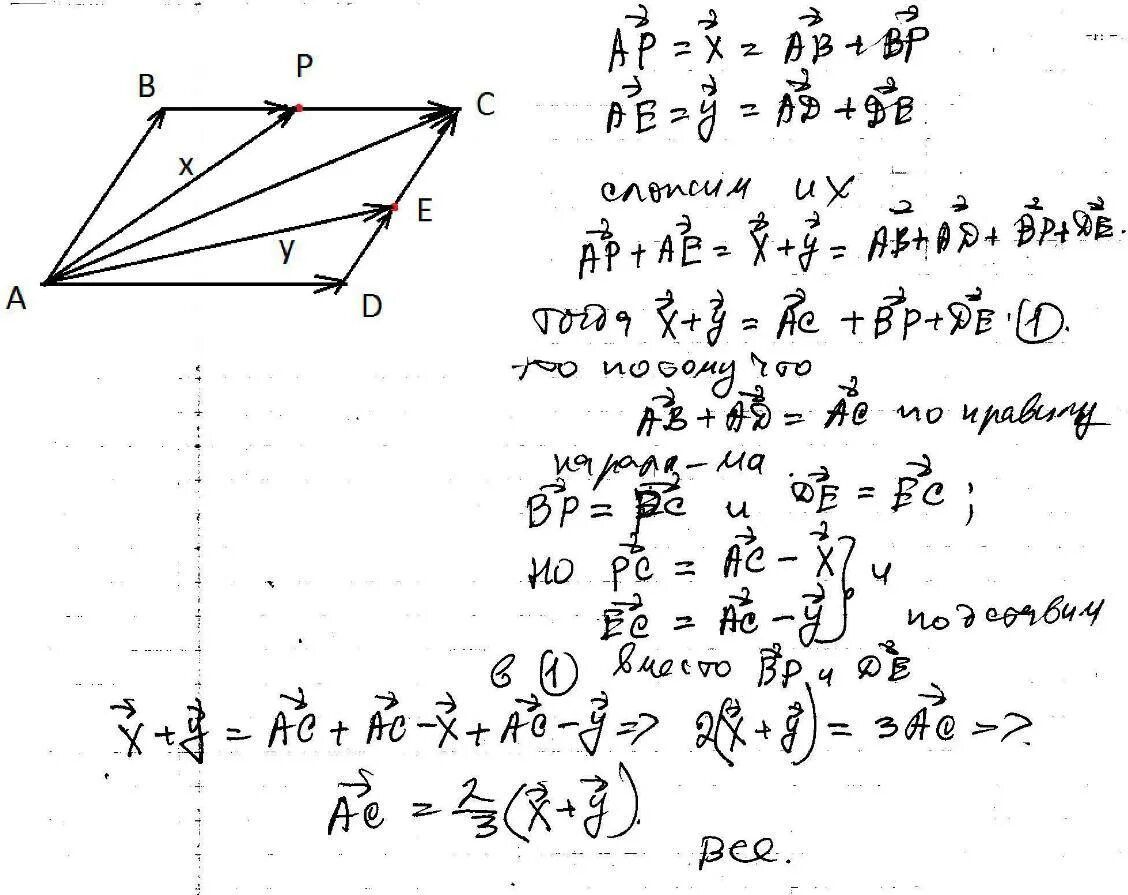 B
P
C
x
E
y
A
D
AP⃗ = x⃗ = AB⃗ + BP⃗
AE⃗ = y⃗ = AD⃗ + DE⃗
сложим их
AP⃗ + AE⃗ = x⃗ + y⃗ = AB⃗ + AD⃗ + BP⃗ + DE⃗.
тогда x⃗ + y⃗ = AC⃗ + BP⃗ + DE⃗. (1).
потому что
AB⃗ + AD⃗ = AC⃗ по правилу
парал-ма
BP⃗ = PC⃗ и DE⃗ = EC⃗;
но PC⃗ = AC⃗ - x⃗ } и
EC⃗ = AC⃗ - y⃗ } подставим
в (1) вместо BP⃗ и DE⃗
x⃗ + y⃗ = AC⃗ + AC⃗ - x⃗ + AC⃗ - y⃗ => 2(x⃗ + y⃗) = 3AC⃗ =>
AC⃗ = 2/3 (x⃗ + y⃗).
все.